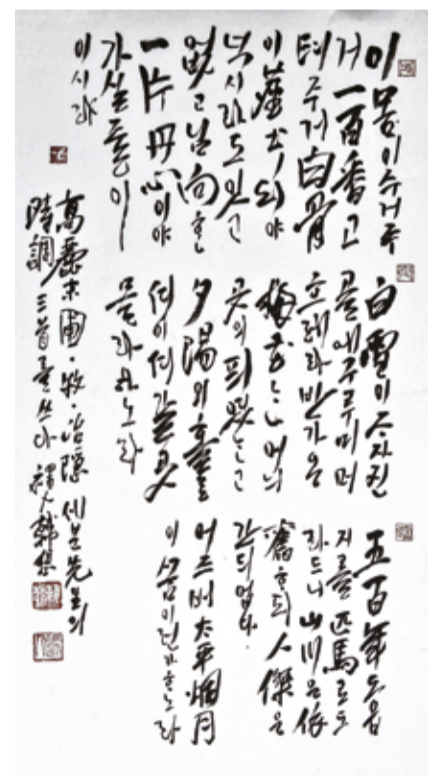 이 몸이 주거 주
거 一百番 고
텨 주거 白骨
이 塵土ㅣ 되야
넉시라도 잇고
업고 님 向ᄒᆞᆫ
一片丹心이야
가싈 줄이
이시랴
白雪이 ᄌᆞ자진
골에 구루미 머
흐레라 반가온
梅花는 어늬
곳의 픠엿는고
夕陽의 호올로
셔이셔 갈 곳
몰라 ᄒᆞ노라
五百年 도읍
지를 匹馬로 도
라드니 山川은 依
舊ᄒᆞ되 人傑은
간듸 업다.
어즈버 太平烟月
이 ᄭᅮᆷ이런가 ᄒᆞ노라
高麗末 圃·牧·冶隱 세분 先生의
時調 三首를 쓰다